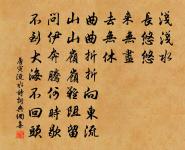 淺淺水
長悠悠
來無盡
去無休
曲曲折折向東流
山山嶺嶺難阻留
問伊奔騰何時歇
不到大海不回頭
唐寅流水詩詞典網